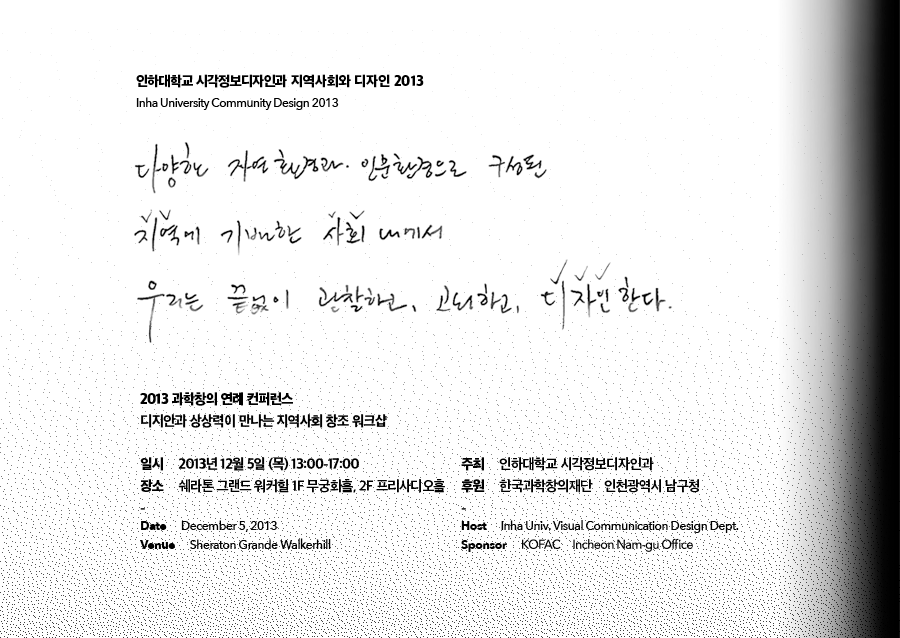 인하대학교 시각정보디자인과 지역사회와 디자인 2013
Inha University Community Design 2013
다양한 자연환경과 인문환경으로 구성된
지역에 기반한 사회 내에서
우리는 끝없이 관찰하고, 고뇌하고, 디자인한다.
2013 과학창의 연례 컨퍼런스
디지안과 상상력이 만나는 지역사회 창조 워크샵
일시 2013년 12월 5일 (목) 13:00-17:00
장소 쉐라톤 그랜드 워커힐 1F 무궁화홀, 2F 프리사디오홀
-
Date December 5, 2013
Venue Sheraton Grande Walkerhill
주최 인하대학교 시각정보디자인과
후원 한국과학창의재단 인천광역시 남구청
-
Host Inha Univ. Visual Communication Design Dept.
Sponsor KOFAC Incheon Nam-gu Office